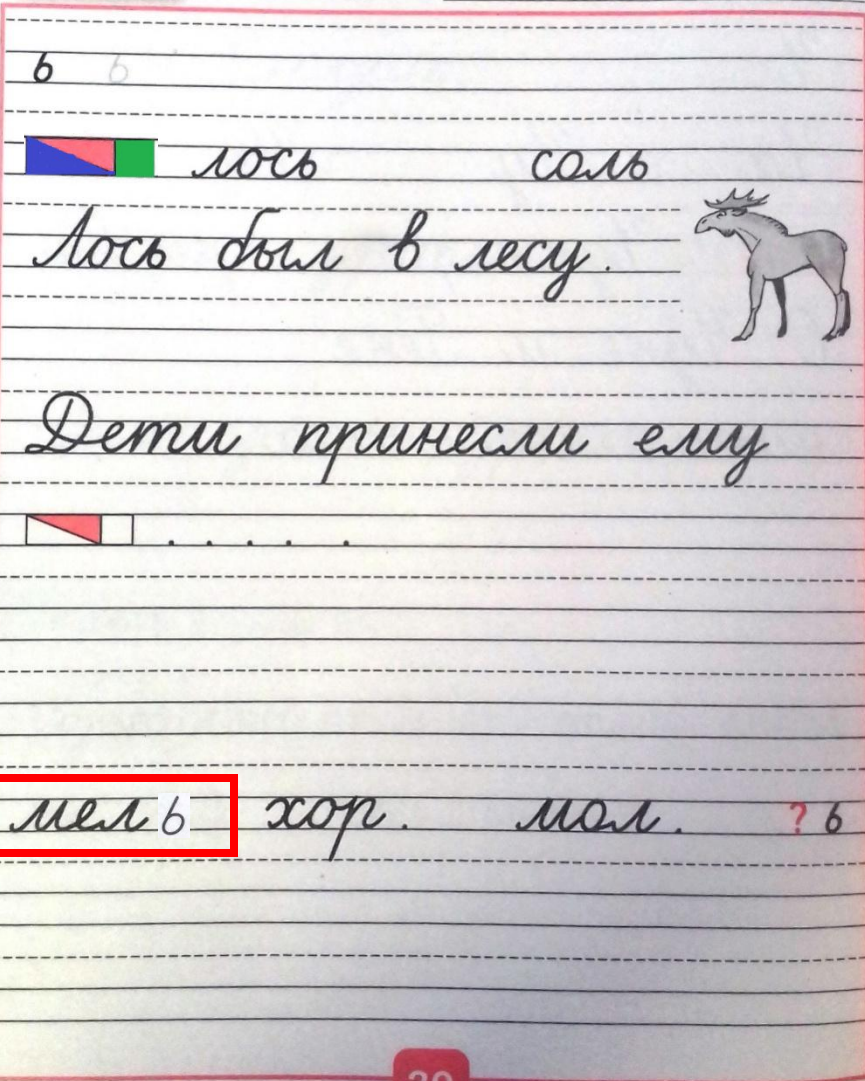 ь ь
лось соль
Лось был в лесу.
Дети принесли ему
. . . . .
мель хор. мол. ? ь